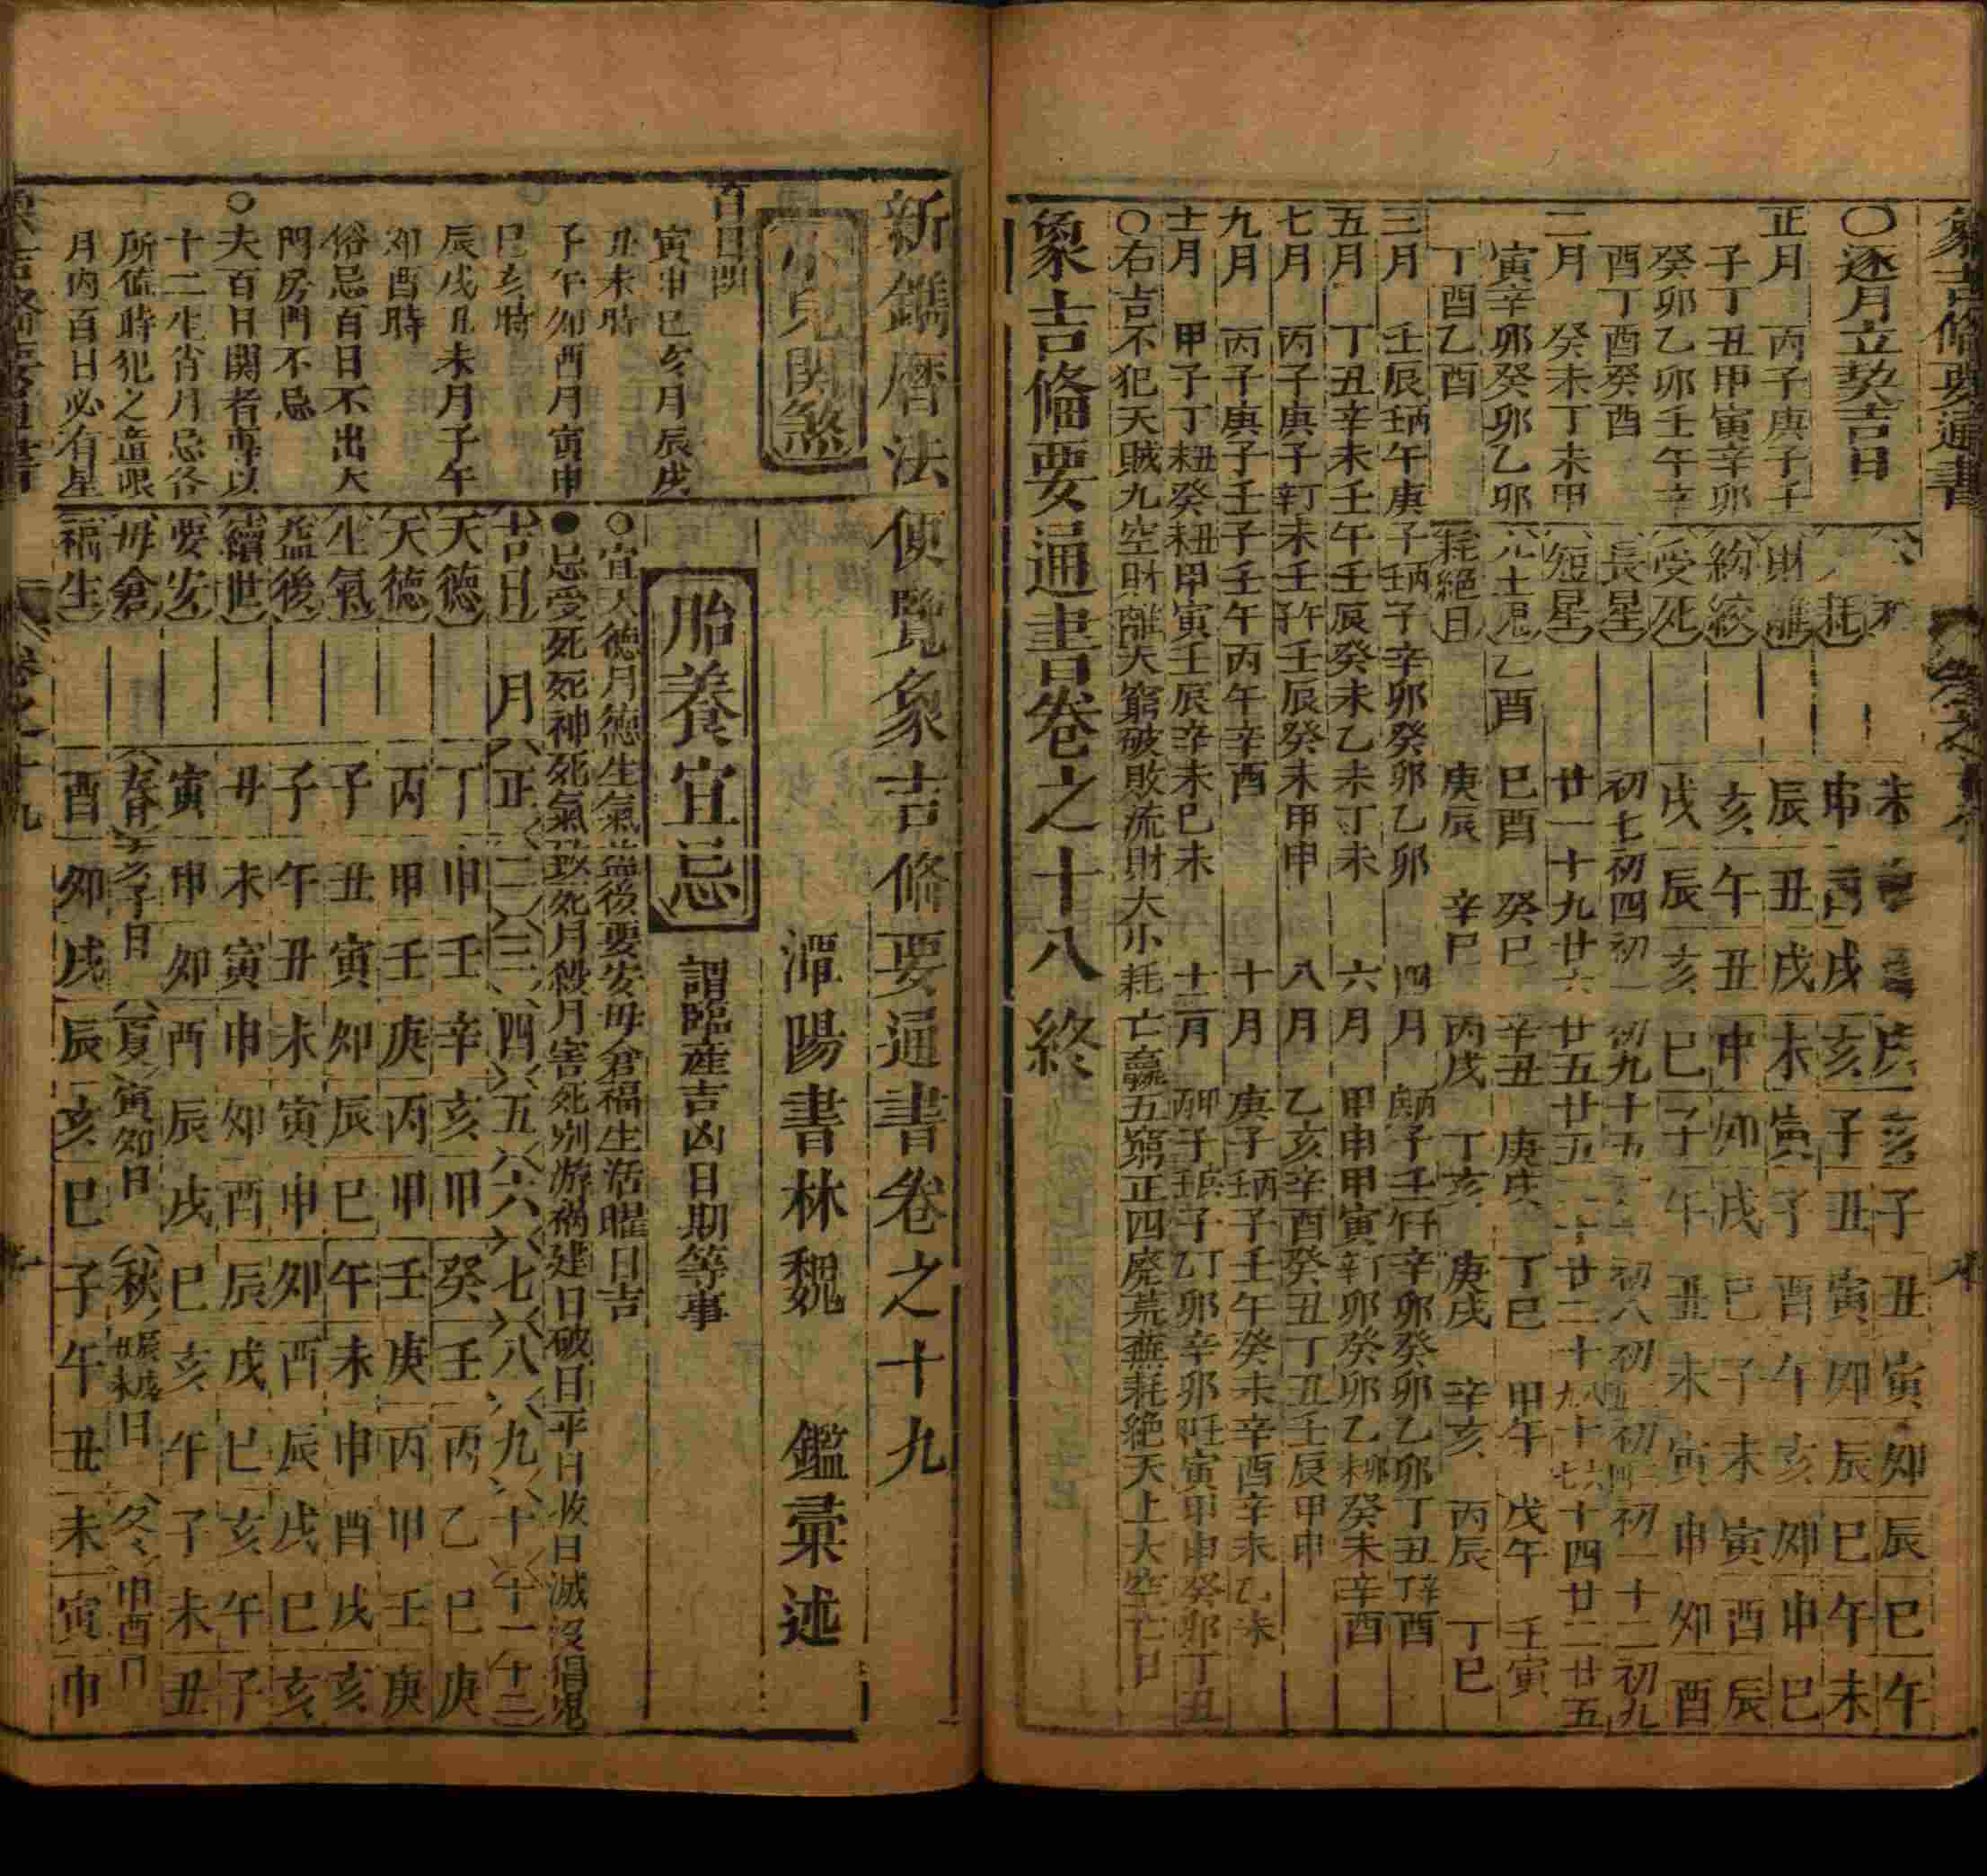 象吉脩要通書
〇逐月立契吉日
正月 丙子庚子壬
子丁丑甲寅辛卯
癸卯乙卯壬午辛
酉丁酉癸酉
二月 癸未丁未甲
寅辛卯癸卯乙卯
丁酉乙酉
未 戌 亥 子 丑 寅 卯 辰 巳 午
耗 申 酉 戌 亥 子 丑 寅 卯 辰 巳 午 未
財離 辰 丑 戌 未 寅 子 酉 午 亥 卯 申 巳
絞 亥 午 丑 申 卯 戌 巳 子 未 寅 酉 辰
受死 戌 辰 亥 巳 子 午 丑 未 寅 申 卯 酉
長星 初七 初四 初一 初九 十五 初八 初 初 初一 十二 初九
短星 廿一 十九 廿六 廿五 廿五 二十 廿二 十八 十九 十六 十七 十四 廿二 廿五
乙酉 巳酉 癸巳 辛丑 庚戌 丁巳 甲午 戊午 壬寅
耗絕日 庚辰 辛巳 丙戌 丁亥 庚戌 辛亥 丙辰 丁巳
三月 壬辰壬丙午庚子壬丙子辛卯癸卯乙卯
四月 庚丙子壬午辛卯癸卯乙卯丁丑丁辛酉
五月 丁丑辛未壬午壬辰癸未乙未丁未
六月 甲申甲寅辛丁卯癸卯乙未卯癸未辛酉
七月 丙子庚子辛丁未壬午壬辰癸未甲申
八月 乙亥辛酉癸丑丁丑壬辰甲申
九月 丙子庚子壬子壬午丙午辛酉
十月 庚子壬丙子壬午癸未辛酉辛未乙未
十一月 甲子丁丑未癸丑未甲寅壬辰辛未巳未
十二月 子 子乙丁卯辛卯 寅甲申癸卯丁丑
〇右吉不犯天賊九空財離大窮破敗流財大小耗亡贏五窮正四廢荒蕪耗絕天上大空亡日
象吉脩要通書卷之十八終
新鐫曆法便覽象吉脩要通書卷之十九
潭陽書林魏 鑑彙述
小兒關煞
百日關
寅申巳亥月辰戌
丑未時
子午卯酉月寅申
巳亥時
辰戌丑未月子午
卯酉時
俗忌百日不出大
門房門不忌
〇夫百日關者專以
十二生肖月忌各
所值時犯之童限
月內百日必有星
胎養宜忌 謂臨產吉凶日期等事
〇宜天德月德生氣益後要安母倉福生活曜日吉
●忌受死死神死氣致死月殺月害死別游禍建日破日平日收日滅沒倡鬼
吉日 月 正 二 三 四 五 六 七 八 九 十 十一 十二
天德 丁 申 壬 辛 亥 甲 癸 壬 丙 乙 巳 庚
天德 丙 甲 壬 庚 丙 甲 壬 庚 丙 甲 壬 庚
生氣 子 丑 寅 卯 辰 巳 午 未 申 酉 戌 亥
益後 子 午 丑 未 寅 申 卯 酉 辰 戌 巳 亥
續世 丑 未 寅 申 卯 酉 辰 戌 巳 亥 午 子
要安 寅 申 卯 酉 辰 戌 巳 亥 午 子 未 丑
母倉 春 亥子日 夏 寅卯日 秋 辰戌丑未日 冬 申酉日
福生 酉 卯 戌 辰 亥 巳 子 午 丑 未 寅 申